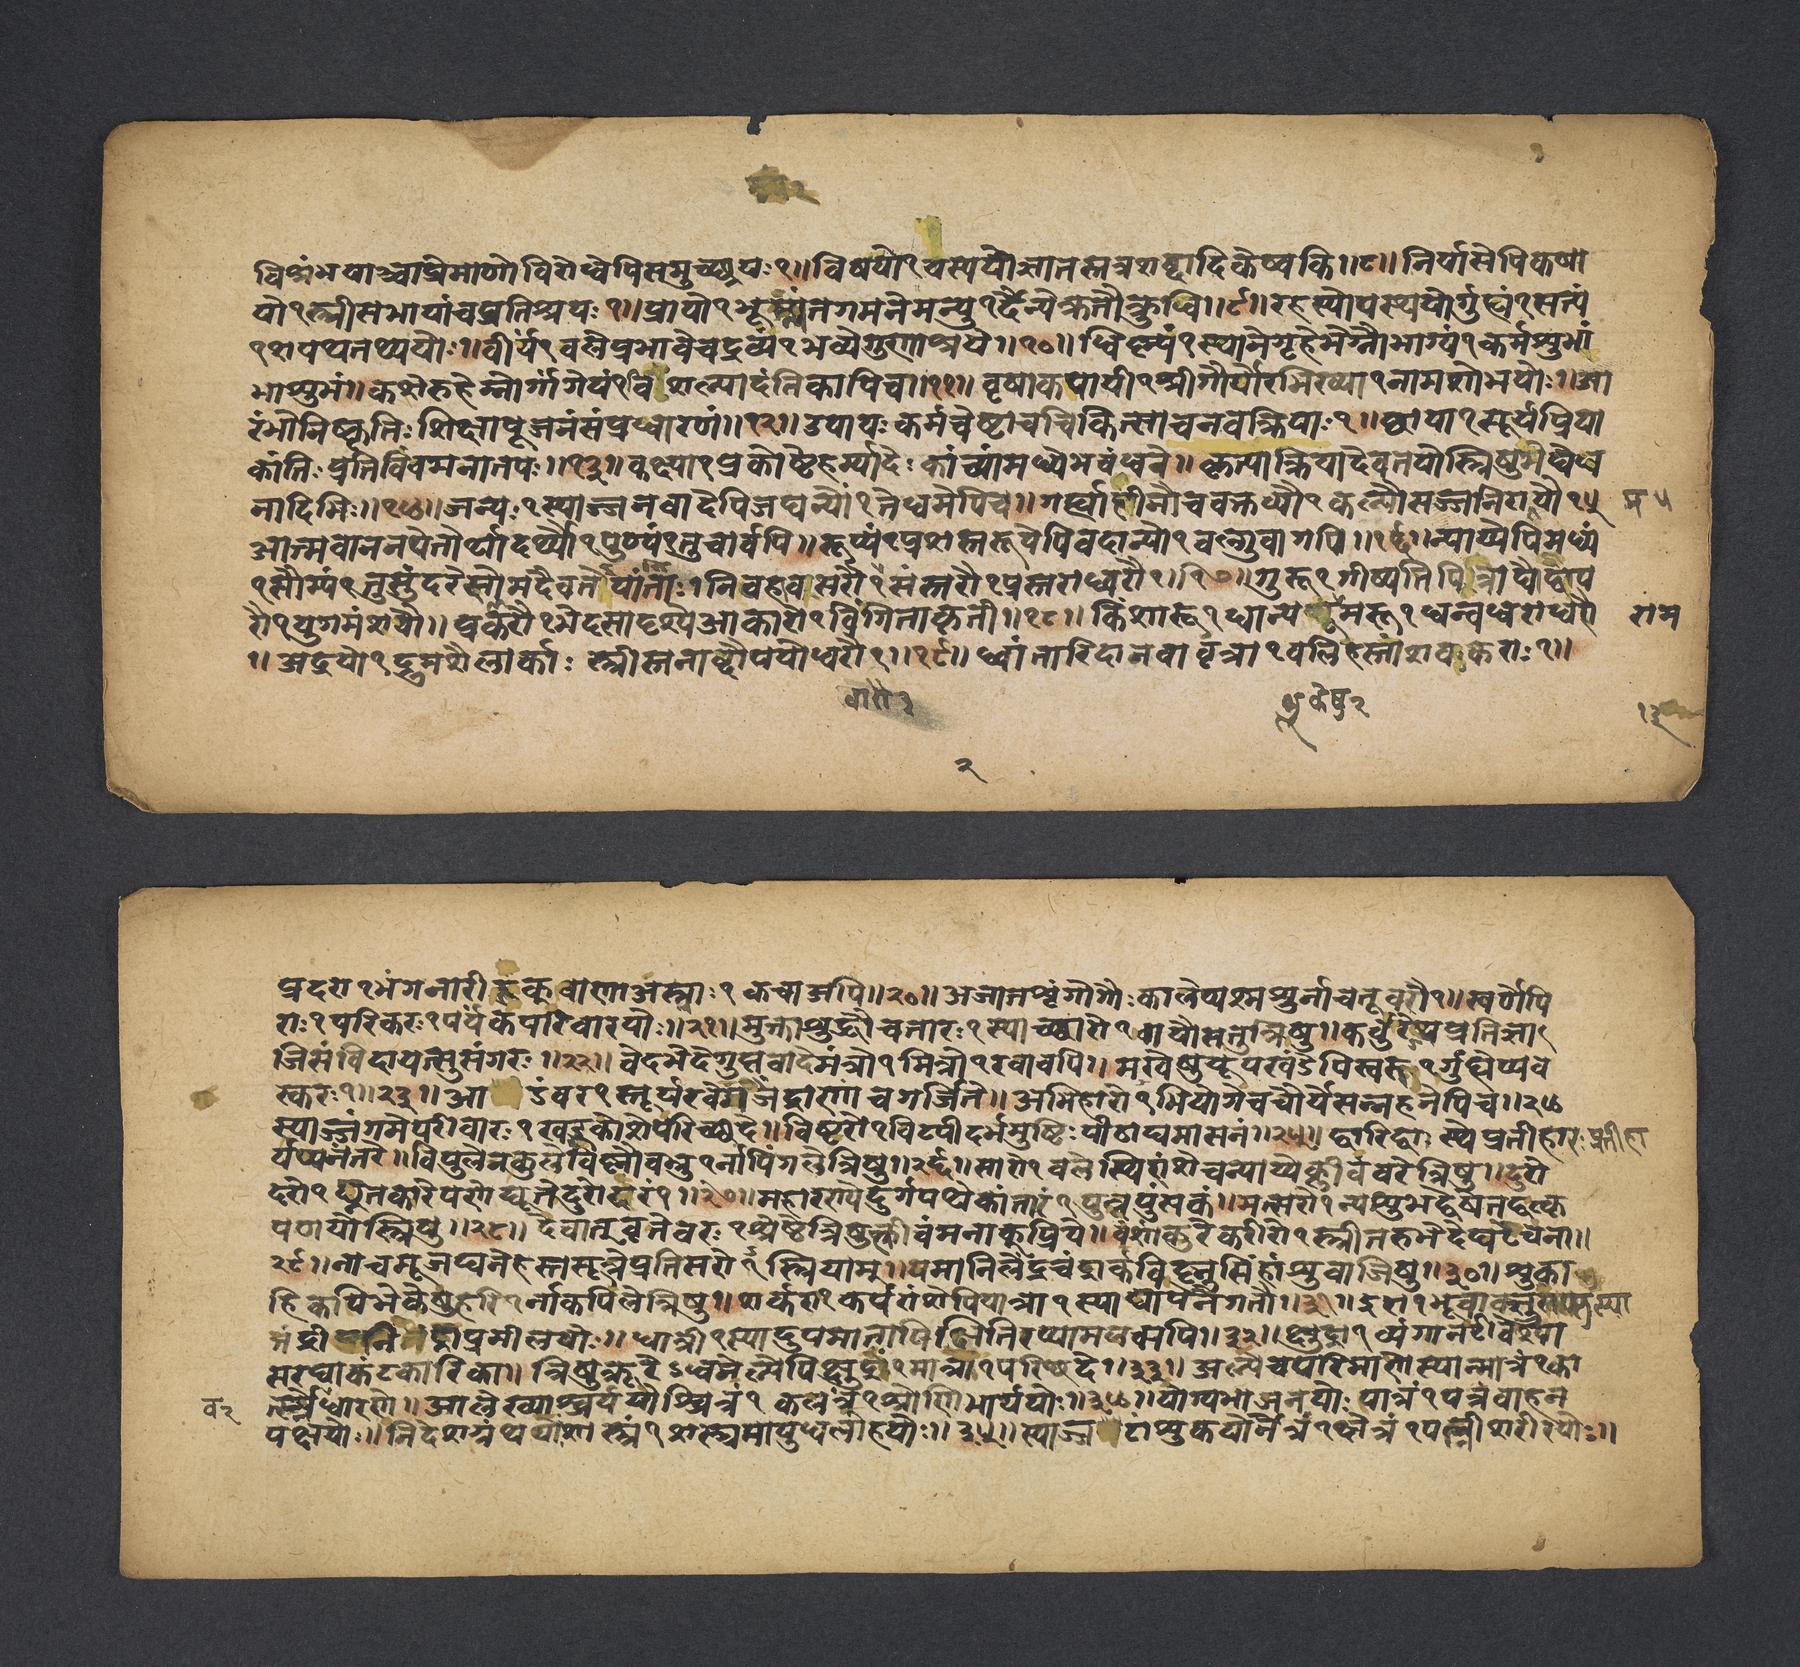 विश्रंभयाञ्चाप्रेमाणोविरोधेपिसमुच्छ्रयः१॥विषयो१यस्ययोज्ञातस्तत्रशब्दादिकेष्वकि॥८॥निर्यासेपिकषा
यो१स्त्रीसभायांचप्रतिश्रयः१॥प्रायो१भूम्न्यंतगमनेमन्यु१र्दैन्येक्रतौक्रुधि॥९॥रहस्योपस्थयोर्गुह्यं१सत्यं
१शपथतथ्ययोः॥वीर्यं१बलेप्रभावेचद्रव्यं१भव्येगुणाश्रये॥१०॥धिष्ण्यं१स्थानेगृहेभेग्नौभाग्यं१कर्मशुभा
भाशुभं॥कशेरुहेम्नोर्गांगेयं१विशल्यादंतिकापिच॥११॥वृषाकपायी१श्रीगौर्योरभिख्या१नामशोभयोः॥आ
रंभोनिष्कृतिःशिक्षापूजनंसंप्रधारणं॥१२॥उपायःकर्मचेष्टाचचिकित्साचनवक्रियाः१॥छाया१सूर्यप्रिया
कांतिःप्रतिबिंबमनातपः॥१३॥कक्ष्या१प्रकोष्ठेहर्म्यादेःकांच्यांमध्येभबंधने॥कृत्याक्रियादेवतयोस्त्रिषुभेद्येध
नादिभिः॥१४॥जन्यः१स्याज्जनवादेपिजघन्यों१तेधमेपिच॥गर्ह्याहीनौचवक्तव्यौ१कल्यौसज्जनिरामयौ१५
आत्मवाननपेतोर्थादर्थ्यौ१पुण्यं१तुचार्वपि॥रूप्यं१प्रशस्तरूपेपिवदान्यो१वल्गुवागपि॥१६॥न्याय्येपिमध्यं
१सौम्यं१तुसुंदरेसोमदैवते॥यांताः॥निवहावसरौ१संस्तरौ१प्रस्तराध्वरौ१॥१७॥गुरू१गीष्पतिपित्राद्यौद्वाप
रौ१युगमंशयौ॥प्रकारौ१भेदसादृश्येआकारो१विंगिताकृती॥१८॥किंशारू१धान्यशूमरू१धन्वधराधरौ
॥अद्रयो१द्रुमशैलार्काःस्त्रीस्तनाब्दौपयोधरौ१॥१९॥ध्वांतारिदानवावृत्रा१बलिहस्तांशवःकराः१॥
राम
२
प्रदरा१भंगनारीरुक्बाणाअस्त्राः१कचाअपि॥२०॥अजातशृंगोगौःकालेप्यश्मश्रुर्नाचतूवरौ१॥स्वर्णेपि
राः१परिकरः१पर्यंकेपरिवारयोः॥२१॥मुक्ताशुद्धौचतारः१स्याच्छारो१वायौसतुत्रिषु॥कर्बुरेथप्रतिज्ञा
जिसंविदापत्सुसंगरः॥२२॥वेदभेदेगुप्तवादेमंत्रो१मित्रो१रवावपि॥मखेषुयूपखंडेपिस्वरु१र्गुह्येप्यव
स्करः१॥२३॥आडंबर१स्तूर्यरवेगजेंद्राणांचगर्जिते॥अभिहारो१भियोगेचचौर्येसन्नहनेपिच॥२४
स्याज्जंगमेपरीवारः१खड्गकोशेपरिच्छदे॥विष्टरो१विटपीदर्भमुष्टिःपीठाद्यमासनं॥२५॥द्वारिद्वाःस्थेप्रतीहारःप्रतीहा
र्यप्यनंतरे॥विपुलेनकुलेविष्णौबभ्रु१र्नापिंगलेत्रिषु॥२६॥सारो१बलेस्थिरांशेचन्याय्येक्लीबंवरेत्रिषु॥दुरो
दरो१द्यूतकारेपणेद्यूतेदुरोदरं१॥२७॥महारण्येदुर्गपथेकांतारं१पुन्नपुंसकं॥मत्सरो१न्यशुभद्वेषेतद्वत्कृ
पणयोस्त्रिषु॥२८॥देवाद्वृतेवरः१श्रेष्ठेत्रिषुक्लीबंमनाक्प्रिये॥वंशांकुरेकरीरो१स्त्रीतरुभेदेघटेचना॥
२९॥नाचमूजघनेहस्तसूत्रेप्रतिसरो१स्त्रियाम्॥यमानिलेंद्रचंद्रार्कविष्णुसिंहांशुवाजिषु॥३०॥शुका
हिकपिभेकेषुहरि१र्नाकपिलेत्रिषु॥शर्करा१कर्परांशेपियात्रा१स्याद्यापनेगतौ॥३१॥इरा१भूवाक्सुराप्सुस्या
तंद्रीनिद्राप्रमीलयोः॥धात्री१स्यादुपमातापिक्षितिरप्यामलक्यपि॥३२॥क्षुद्रा१व्यंगानटीवेश्या
सरघाकंटकारिका॥त्रिषुक्रूरेऽधमेल्पेपिक्षुद्रं१मात्रा१परिच्छदे॥३३॥अल्पेचपरिमाणेस्यान्मात्रं१का
र्त्स्न्येवधारणे॥आलेख्याश्चर्ययोश्चित्रं१कलत्रं१श्रोणिभार्ययोः॥३४॥योग्यभाजनयोःपात्रं१पत्रंवाहन
पक्षयोः॥निदेशग्रंथयोःशास्त्रं१शस्त्रमायुधलोहयोः॥३५॥स्याज्जटांशुकयोर्नेत्रं१क्षेत्रं१पत्नीशरीरयोः॥